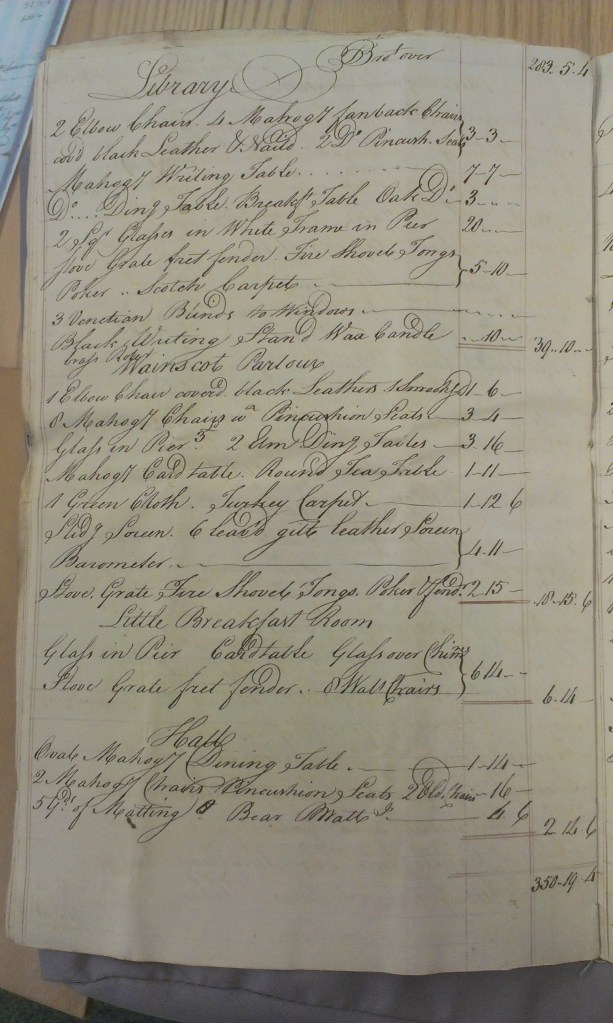 Brot over 283. 5. 4
Library
2 Elbow Chairs. 4 Mahogy fanback Chairs
cov'd black Leather & Nail'd. 2 Do Pincush. Seats 3-3-
Mahogy Writing Table 7-7-
Do Ding Table. Breakft Table Oak Do 3
2 Sqr Glasses in White Frame in Pier 20
Stove Grate fret fender. Fire Shovel Tongs
Poker .. Scotch Carpet 5-10-
3 Venetian Blinds to Windows
Black Writing Stand Wax Candle 10 39..10
brass
Wainscot Parlour
1 Elbow Chair coverd black Leather 1-6-
8 Mahogy Chairs wh Pincushion Seats 3-4-
Glass in Pier 2 Elm Ding Tables 3-16-
Mahogy Card table. Round Tea Table 1-11-
1 Green Cloth. Turkey Carpet 1-12 6
Slidg Screen. 6 leav'd gilt leather Screen
Barometer 4-11-
Stove Grate Fire Shovel Tongs. Poker & fendr 2-15 18-15. 6
Little Breakfast Room
Glass in Pier Cardtable Glass over Chim
Stove Grate fret fender .. 8 Walt Chairs 6-14 6-14
Hall
Oval Mahogy Dining Table 1-14-
2 Mahogy Chairs Pincushion Seats 2 Old Chairs 16-
5 Yds of Matting & Bear Matt 4 6 2-14 6
350-19-4